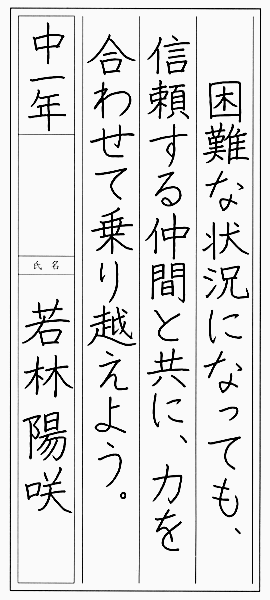 困難な状況になっても、
信頼する仲間と共に、力を
合わせて乗り越えよう。
中一年
氏名
若林陽咲